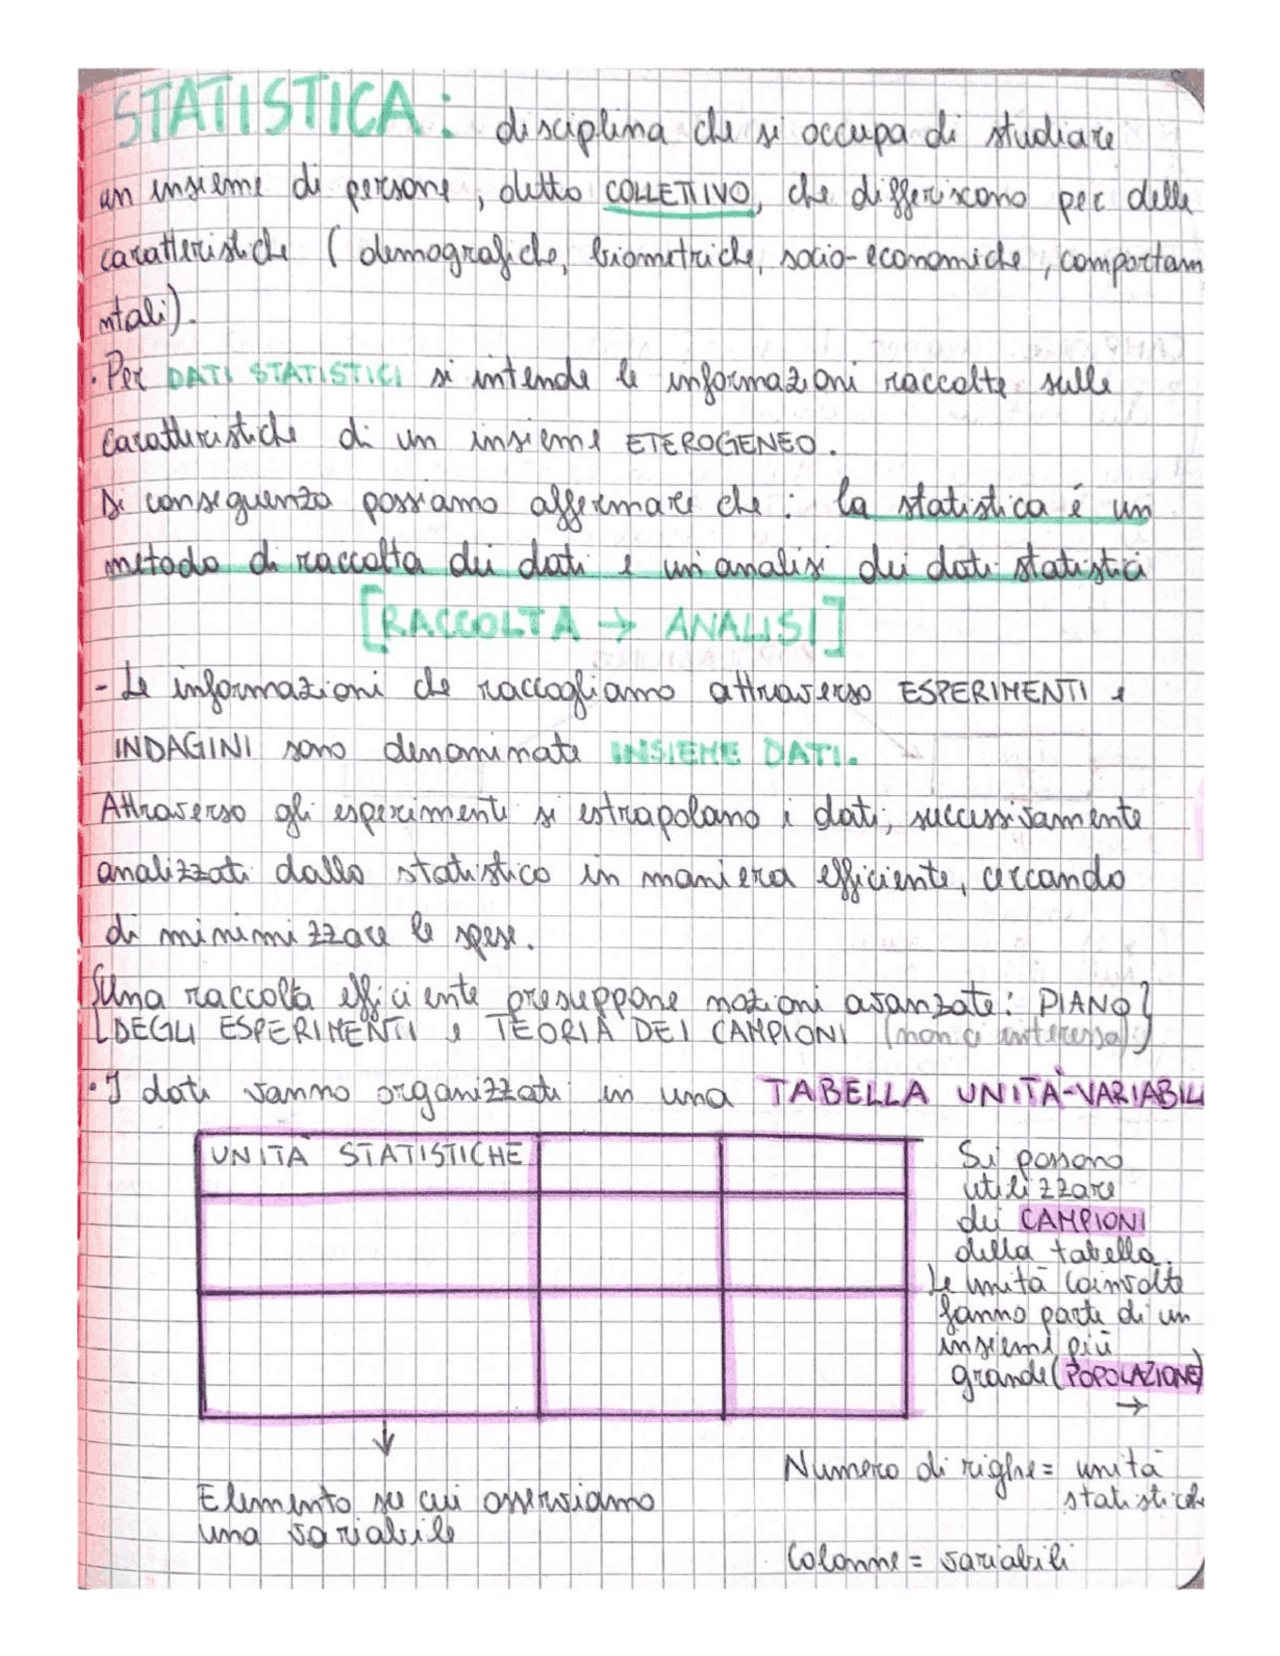 STATISTICA: disciplina che si occupa di studiare
un insieme di persone, detto COLLETTIVO, che differiscono per delle
caratteristiche (demografiche, biometriche, socio-economiche, comportam
ntali).
· Per DATI STATISTICI si intende le informazioni raccolte sulle
caratteristiche di un insieme ETEROGENEO.
Di conseguenza possiamo affermare che: la statistica é un
metodo di raccolta dei dati e un'analisi dei dati statistici
[RACCOLTA → ANALISI]
- Le informazioni che raccogliamo attraverso ESPERIMENTI e
INDAGINI sono denominate INSIEME DATI.
Attraverso gli esperimenti si estrapolano i dati, successivamente
analizzati dallo statistico in maniera efficiente, cercando
di minimizzare le spese.
{Una raccolta efficiente presuppone nozioni avanzate: PIANO}
DEGLI ESPERIMENTI e TEORIA DEI CAMPIONI (non ci interessa)
· I dati vanno organizzati in una TABELLA UNITÀ-VARIABILI
UNITÀ STATISTICHE
Si possono
utilizzare
dei CAMPIONI
della tabella.
Le unità coinvolte
fanno parte di un
insieme più
grande (POPOLAZIONE)
→
↓
Elemento su cui osserviamo
una variabile
Numero di righe = unità
statistiche
Colonne = variabili